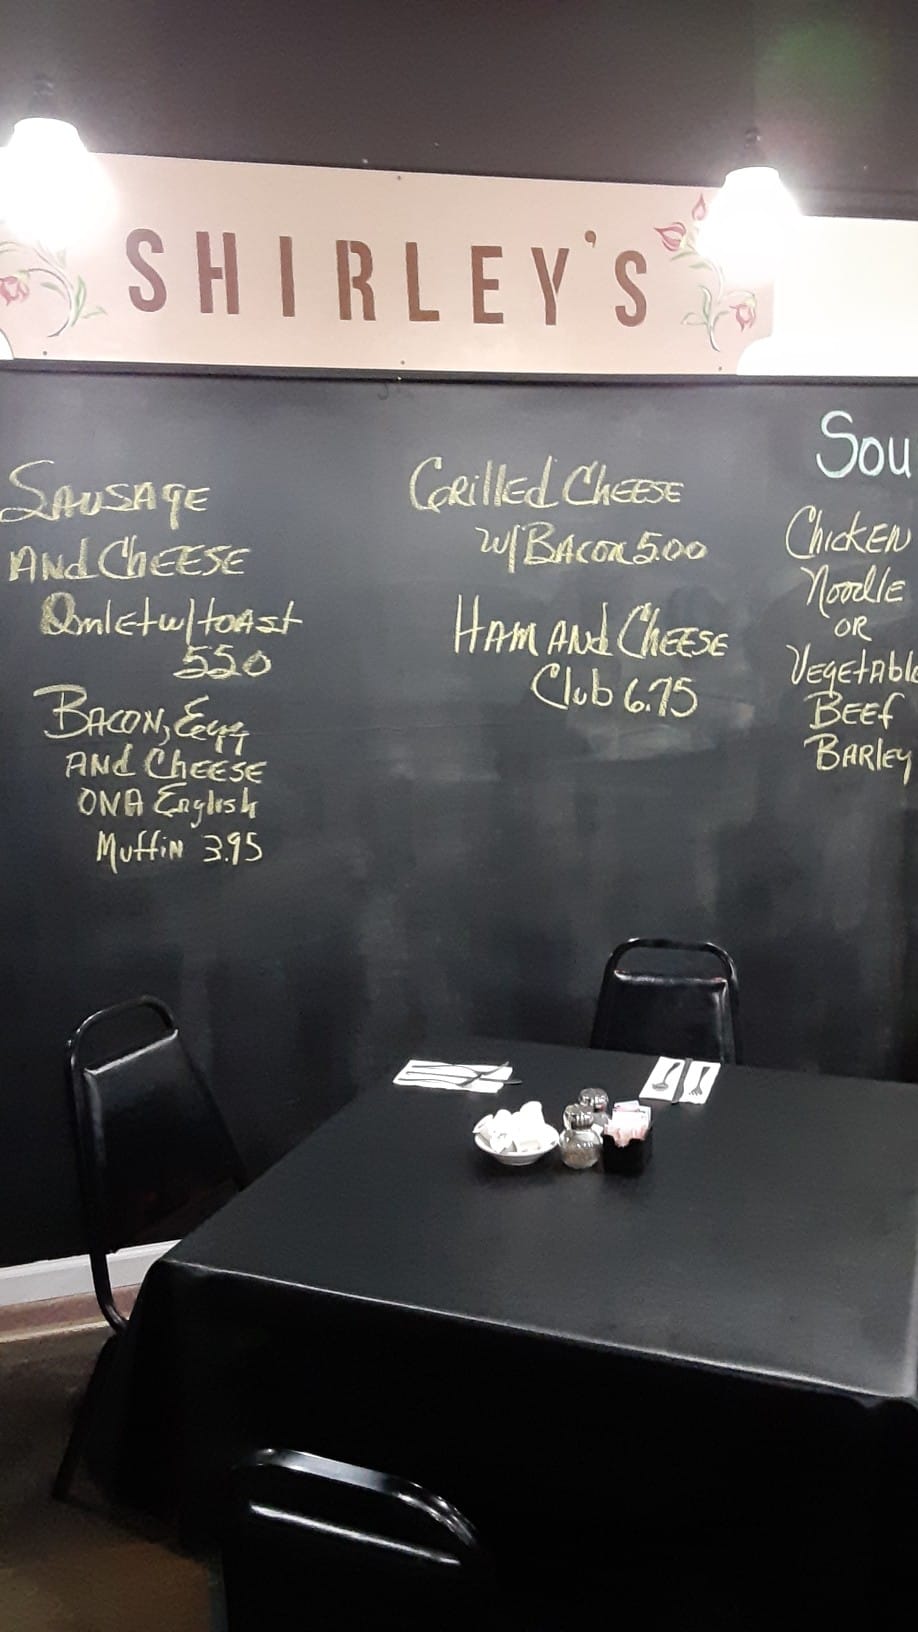 SHIRLEY'S
SAUSAGE
AND CHEESE
Omlet w/toast
550
BACON, Egg
AND CHEESE
ON A English
Muffin 3.95
GRilled CHEESE
w/BACON 5.00
HAM AND CHEESE
Club 6.75
Sou
CHICKEN
Noodle
OR
Vegetable
BEEf
BARley